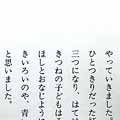 やっていきました。
ひとつきりだった
三つになり、はては
きつねの子どもは
ほしとおなじよう
きいろいのや、青
と思いました。